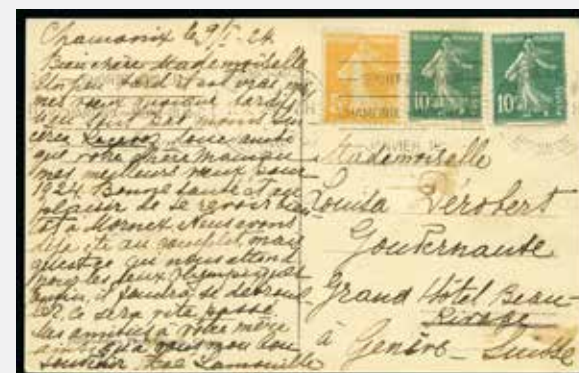 Chamonix le 9/I-24
Bien chère Mademoiselle
Un peu tard il est vrai
mes vœux quoique tardifs
moins sin
cères Recevez donc ainsi
que votre chère Maman
mes meilleurs vœux pour
1924 Bonne santé et au
plaisir de se revoir bien
tôt à Mornex Nous avons
déjà été au complet mais
qu'est-ce qui nous attend
pour les Jeux Olympiques
enfin, il faudra se débrouil
ler ce sera vite passé
Mes amitiés à votre mère
qu'à vous mon bon
souvenir
10
10
CHAMONIX
Mademoiselle
Louisa
Gouvernante
Grand Hôtel Beau-
Rivage
à Genève - Suisse